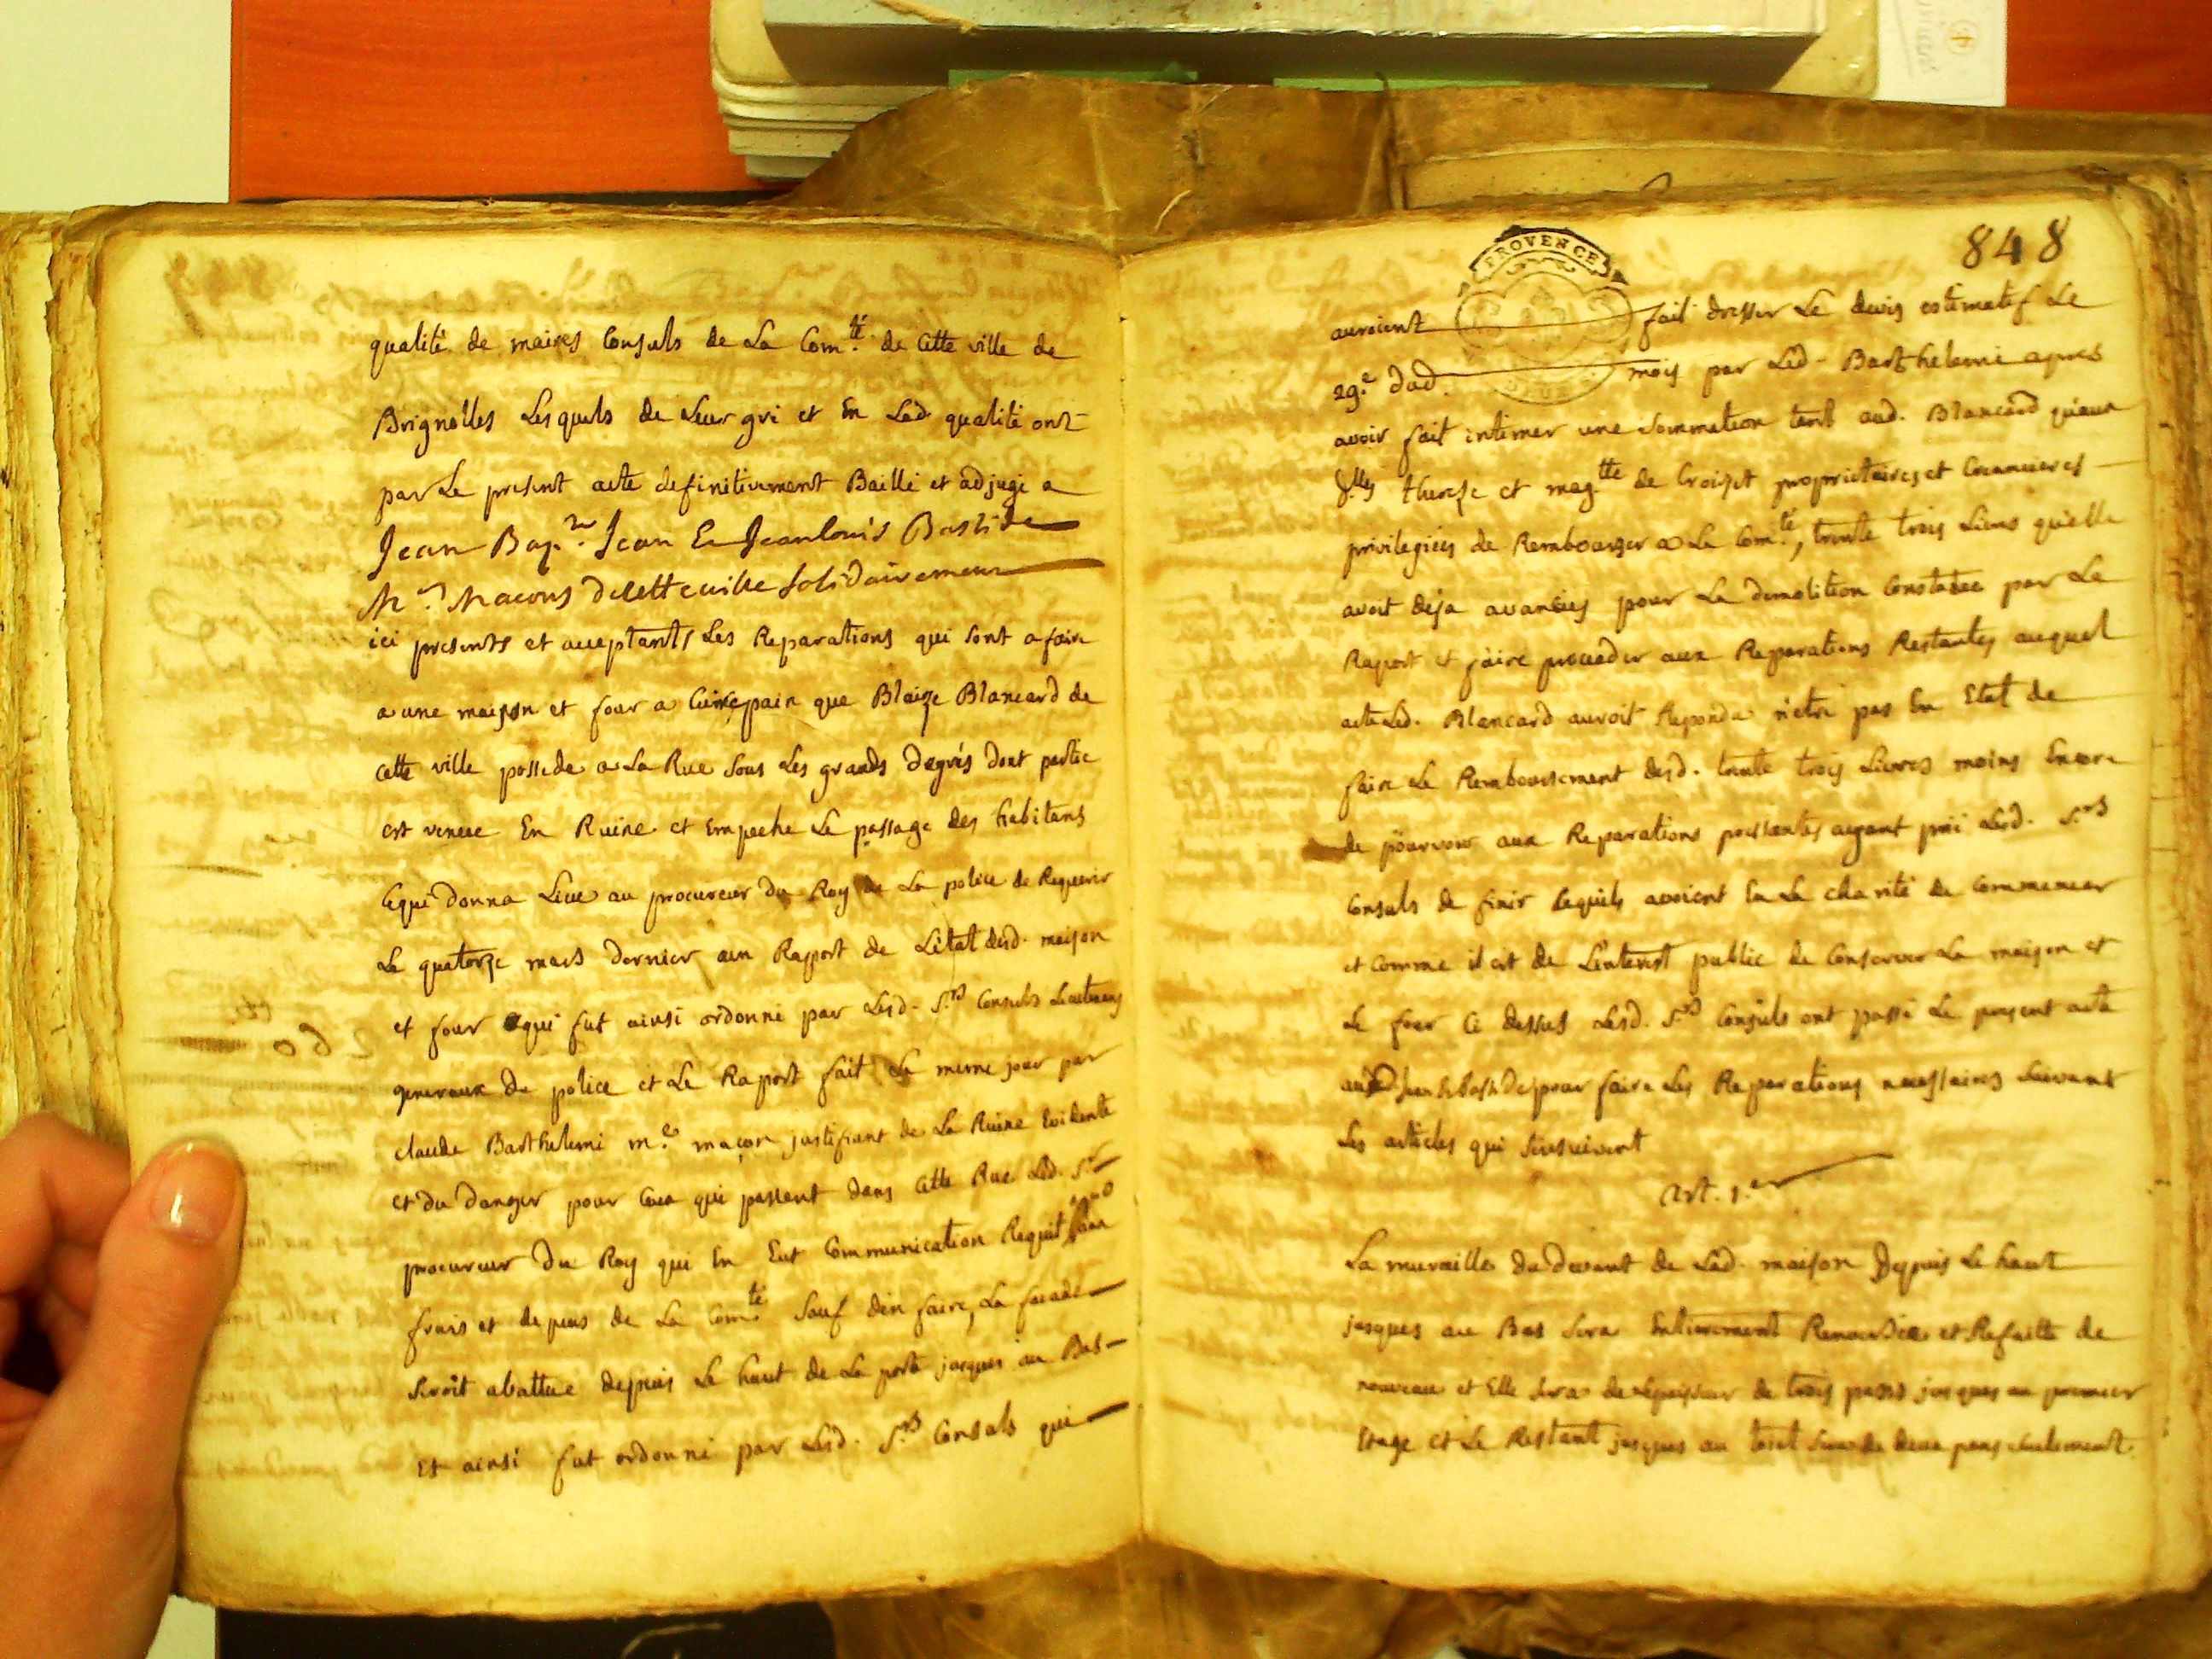 qualité de maires Consuls de La Com.té de Cette ville de
Brignolles Lesquels de Leur gré et En Lad. qualité ont
par Le present acte definitivement Baillé et adjugé a
Jean Bap.te Jean Et Jean louis Bastide
M.es Macons de cette ville solidairement
ici presents et acceptants Les Reparations qui sont a faire
a une maison et four a Cuire pain que Blaize Blancard de
Cette ville possede a La Rue sous Les grands degrés dont partie
est venue En Ruine et Empeche Le passage des habitans
Cequi donna Lieu au procureur du Roy de La police de Requerir
Le quatorze mars dernier un Raport de L'état desd. maison
et four Cequi fut ainsi ordonné par Lesd. S.rs Consuls Lieutenans
generaux de police et Le Raport fait Le meme jour par
claude Barthelemi m.e maçon justifiant de La Ruine Evidente
et du danger pour Ceux qui passent dans Cette Rue Led. S.r
procureur du Roy qui En Eut Communication Requit
frais et depens de La Com.té sauf d'en faire, La facade
seroit abattue depuis Le haut de La porte jusques au Bas
Et ainsi fut ordonné par Lesd. S.rs Consuls qui
PROVENCE
848
auroient fait dresser Le devis estimatif Le
29.e dud. mois par Led. Barthelemi apres
avoir fait intimer une sommation tant aud. Blancard qu'aux
d.lles therese et mag.tte de Croizet proprietaires et Creancieres
privilegiées de Rembourser a La Com.té, trente trois Livres qu'elle
avoit deja avancées pour La demolition Constatée par Le
Raport et faire proceder aux Reparations Restantes auquel
acte Led. Blancard auroit Repondu n'etre pas En Etat de
faire Le Remboursement desd. trente trois Livres moins Encore
de pourvoir aux Reparations pressantes ayant prié Lesd. S.rs
Consuls de finir Cequils avoient Eu La charité de Commencer
et Comme il est de L'interest public de Conserver La maison et
Le four Ci dessus Lesd. S.rs Consuls ont passé Le present acte
pour faire Les Reparations necessaires suivant
Les articles qui s'ensuivent
Art. 1.er
La muraille du devant de Lad. maison Depuis Le haut
jusques au Bas sera Entierement et Refaitte de
nouveau et Elle sera de l'epaisseur de trois pans jusques au premier
Etage et Le Restant jusques au toict sera de deux pans seulement.